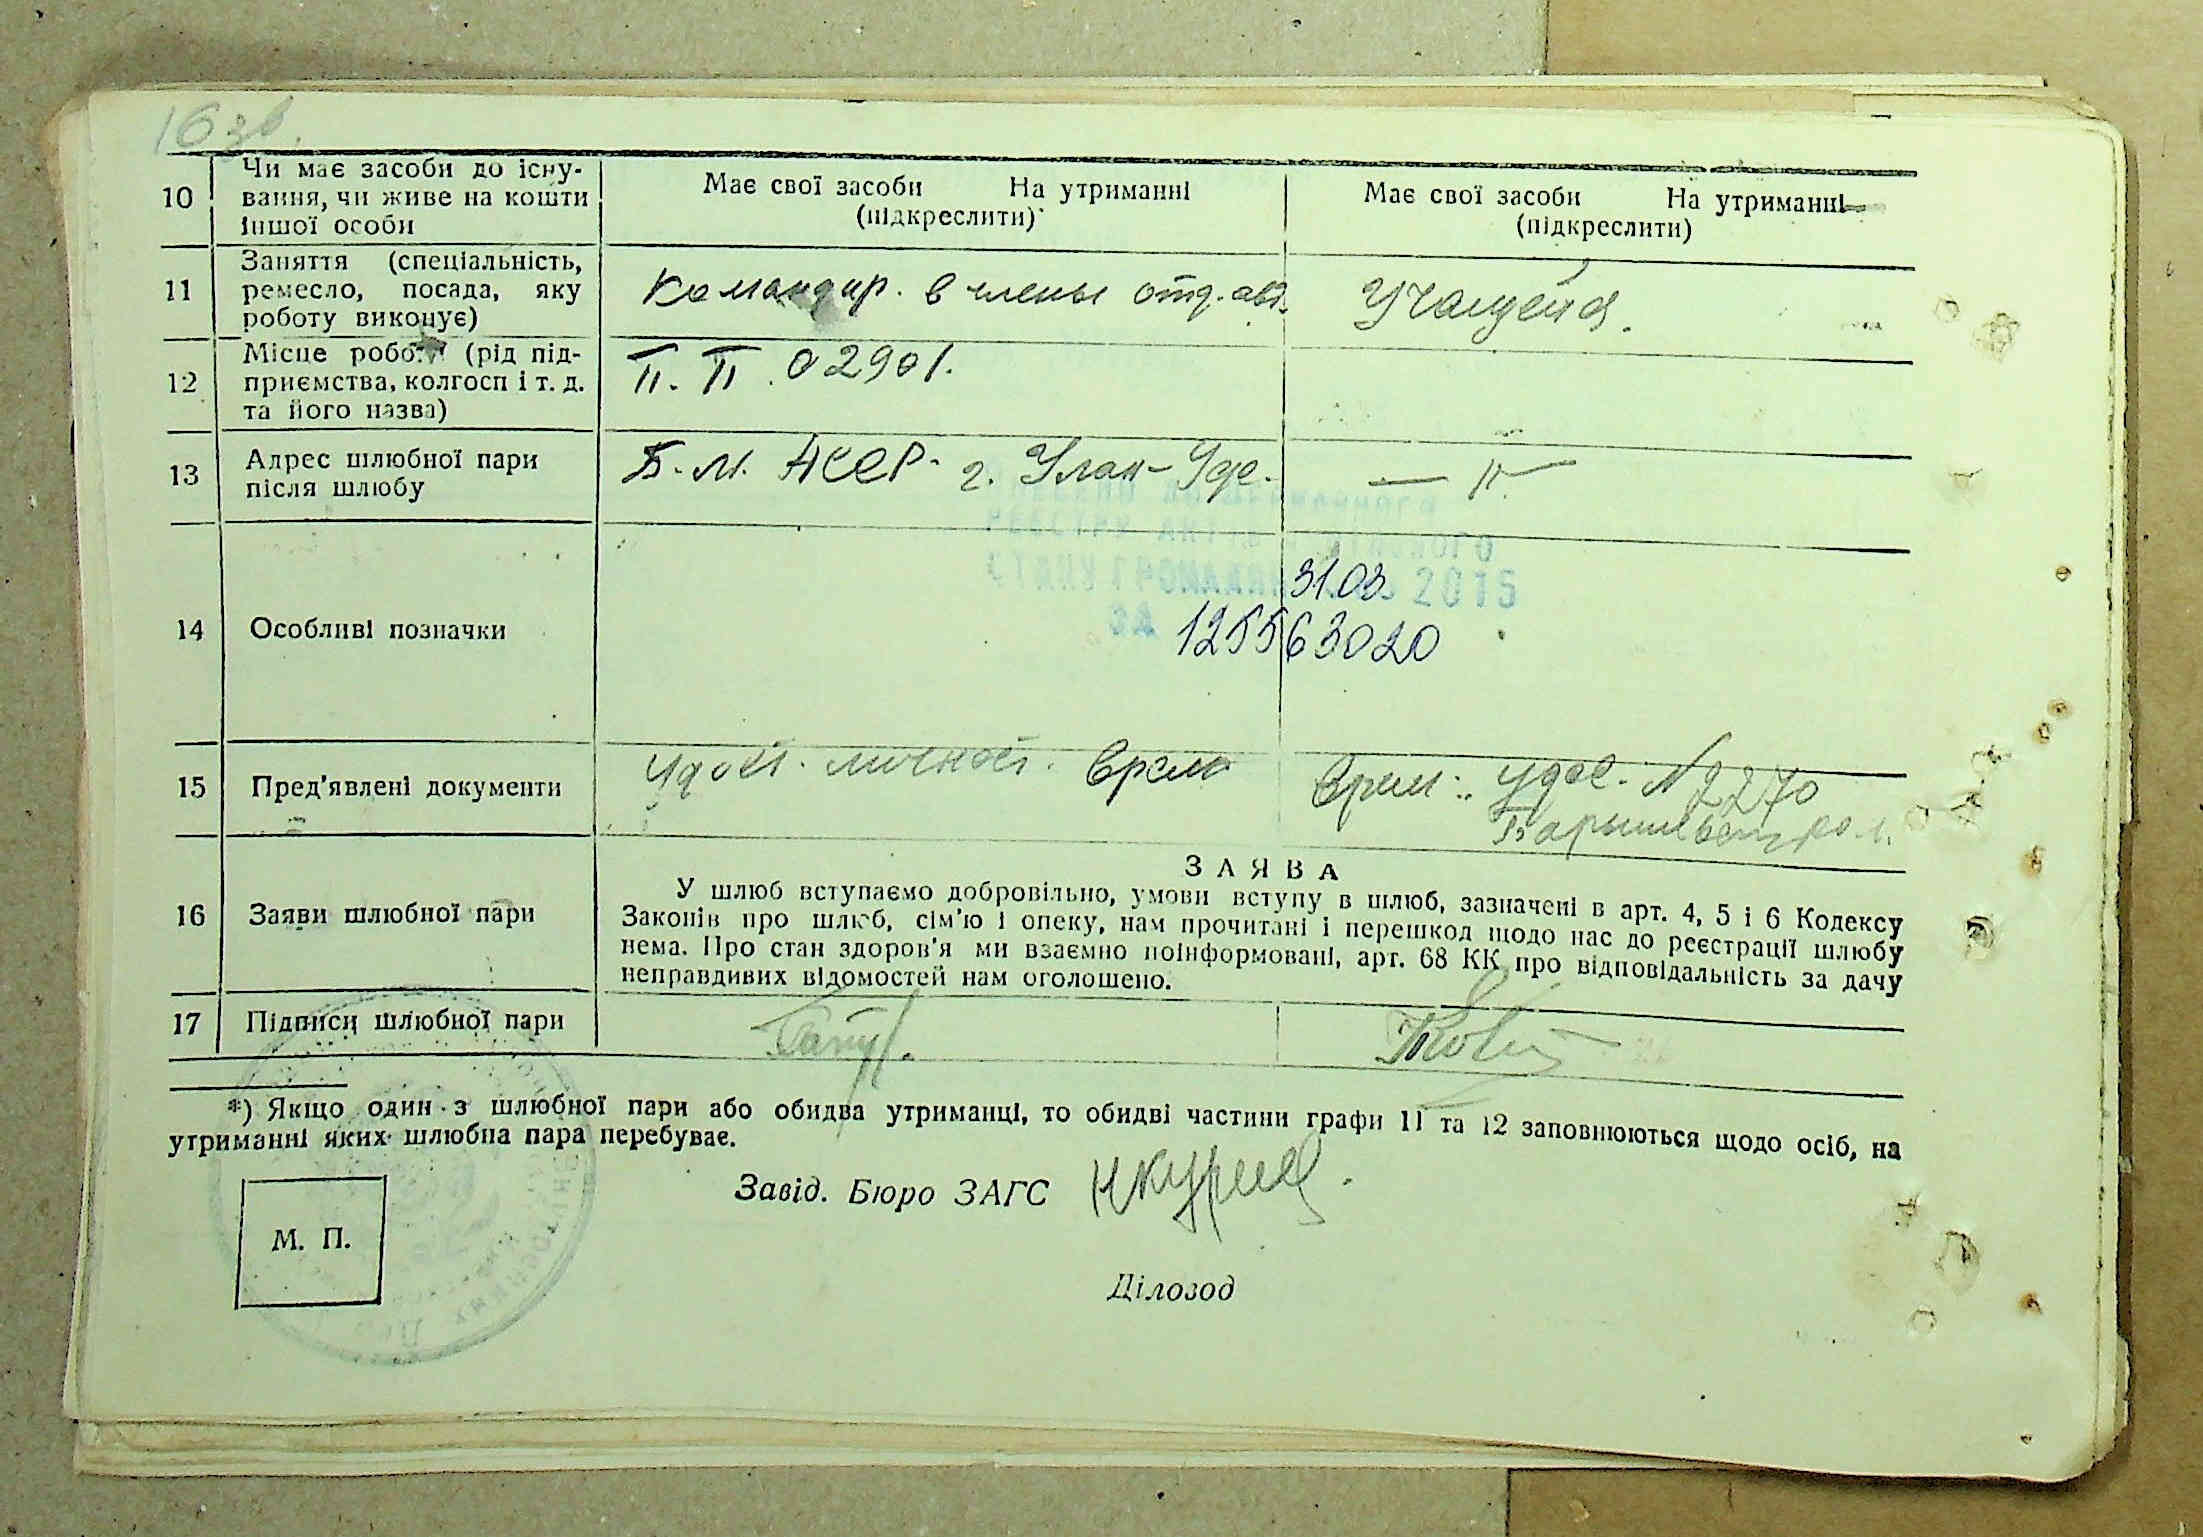 16 зв.
10 Чи має засоби до існу-
вання, чи живе на кошти
іншої особи
Має свої засоби На утриманні
(підкреслити)
Має свої засоби На утриманні
(підкреслити)
11 Заняття (спеціальність,
ремесло, посада, яку
роботу виконує)
Командир. в члены отд. авт.
Учащейся.
12 Місце роботи (рід під-
приємства, колгосп і т. д.
та його назва)
П. П. 02901.
13 Адрес шлюбної пари
після шлюбу
Б. М. АССР. г. Улан-Уде.
— " —
14 Особливі позначки
ВНЕСЕНО ДО ДЕРЖАВНОГО
РЕЄСТРУ АКТІВ ЦИВІЛЬНОГО
СТАНУ ГРОМАДЯН 31.03. 2015
ЗА 125563020
15 Пред'явлені документи
Удост. личност. Врем
Врем. удос. № 2270
16 Заяви шлюбної пари
ЗАЯВА
У шлюб вступаємо добровільно, умови вступу в шлюб, зазначені в арт. 4, 5 і 6 Кодексу
Законів про шлюб, сім'ю і опеку, нам прочитані і перешкод щодо нас до реєстрації шлюбу
нема. Про стан здоров'я ми взаємно поінформовані, арт. 68 КК про відповідальність за дачу
неправдивих відомостей нам оголошено.
17 Підписи шлюбної пари
*) Якщо один з шлюбної пари або обидва утриманці, то обидві частини графи 11 та 12 заповнюються щодо осіб, на
утриманні яких шлюбна пара перебуває.
Завід. Бюро ЗАГС
М. П.
Діловод